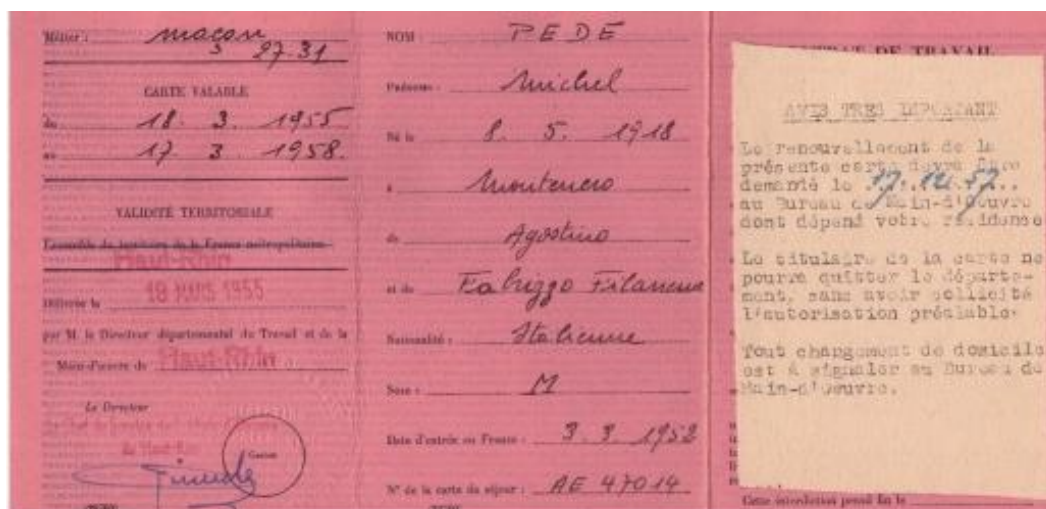 Métier : maçon
3 27-31
CARTE VALABLE
du 18. 3. 1955
au 17. 3. 1958.
VALIDITÉ TERRITORIALE
Ensemble du territoire de la France métropolitaine
Haut-Rhin
Délivrée le 18 MARS 1955
par M. le Directeur départemental du Travail et de la
Main-d'œuvre de Haut-Rhin
Le Directeur
du Haut-Rhin
Cachet
NOM : PEDE
Prénoms : Michel
Né le 8. 5. 1918
à Montenero
de Agostino
et de Fabrizzo Filamena
Nationalité : Italienne
Sexe : M
Date d'entrée en France : 3. 3. 1952
N° de la carte de séjour : AE 47014
DE TRAVAIL
AVIS TRES IMPORTANT
Le renouvellement de la
présente carte devra être
demandé le 17. 12. 57..
au Bureau de Main-d'Oeuvre
dont dépend votre résidence
Le titulaire de la carte ne
pourra quitter le départe-
ment, sans avoir sollicité
l'autorisation préalable.
Tout changement de domicile
est à signaler au Bureau de
Main-d'Oeuvre.
Cette interdiction prend fin le